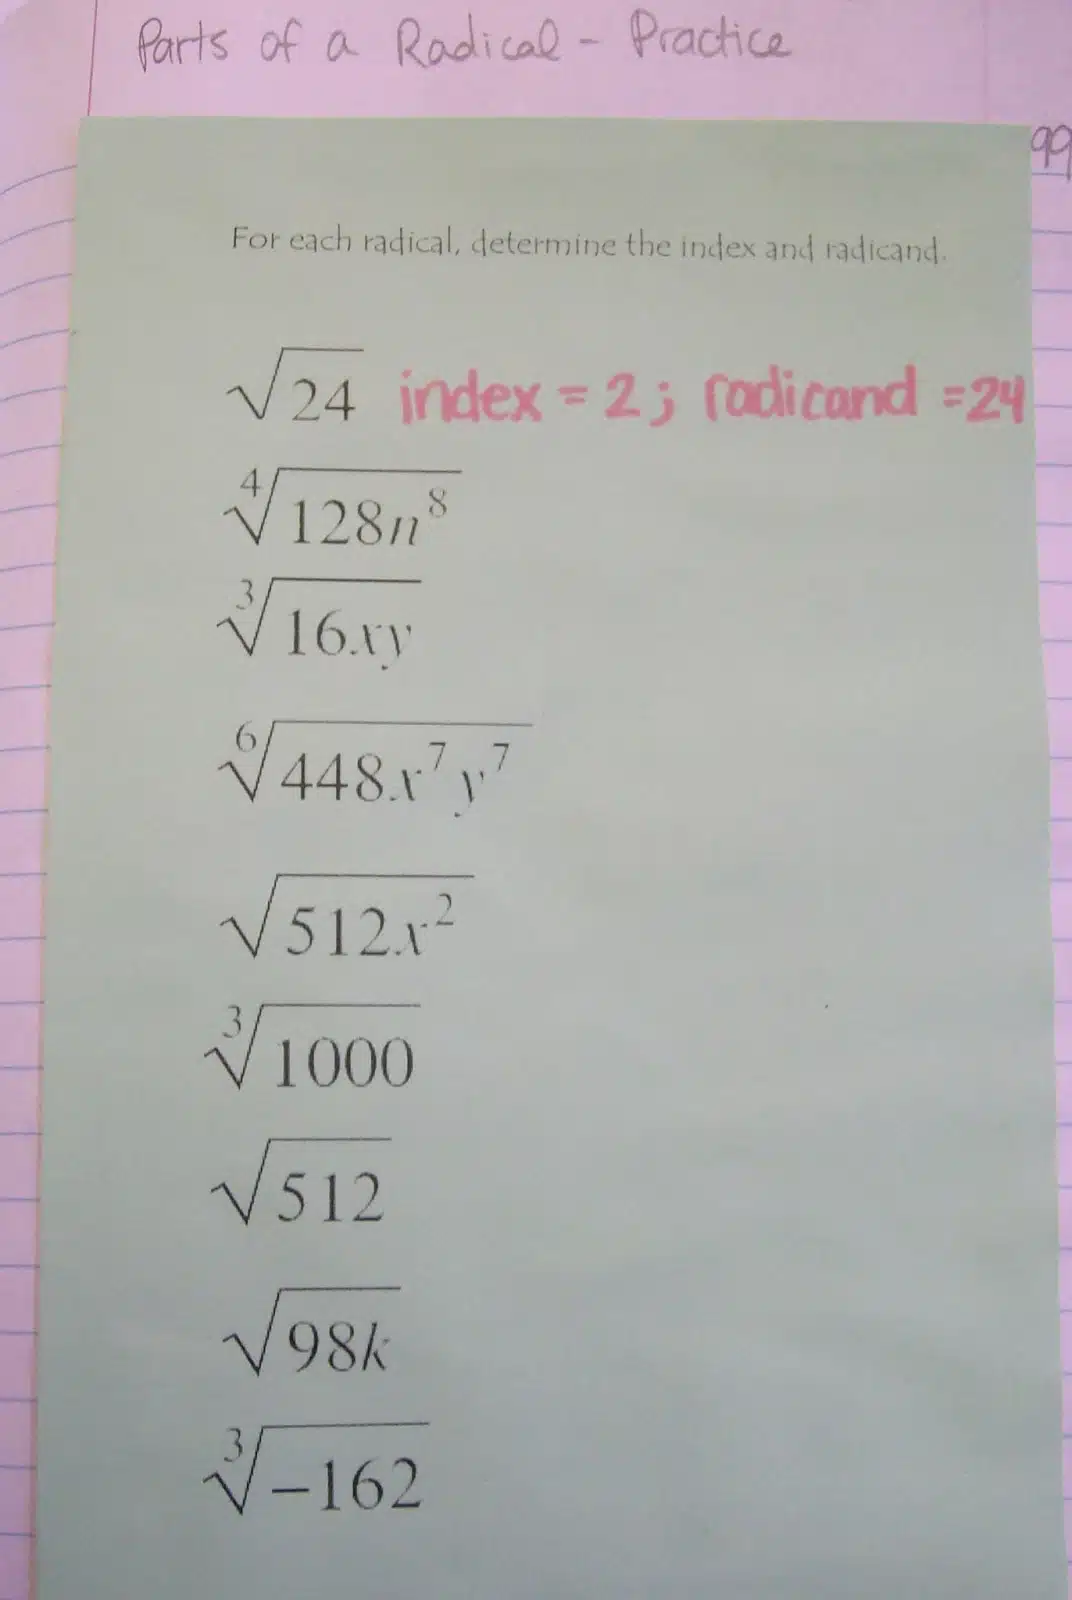 Parts of a Radical - Practice
99
For each radical, determine the index and radicand.
√24 index = 2; radicand = 24
∜128n⁸
∛16xy
⁶√448x⁷y⁷
√512x²
∛1000
√512
√98k
∛-162